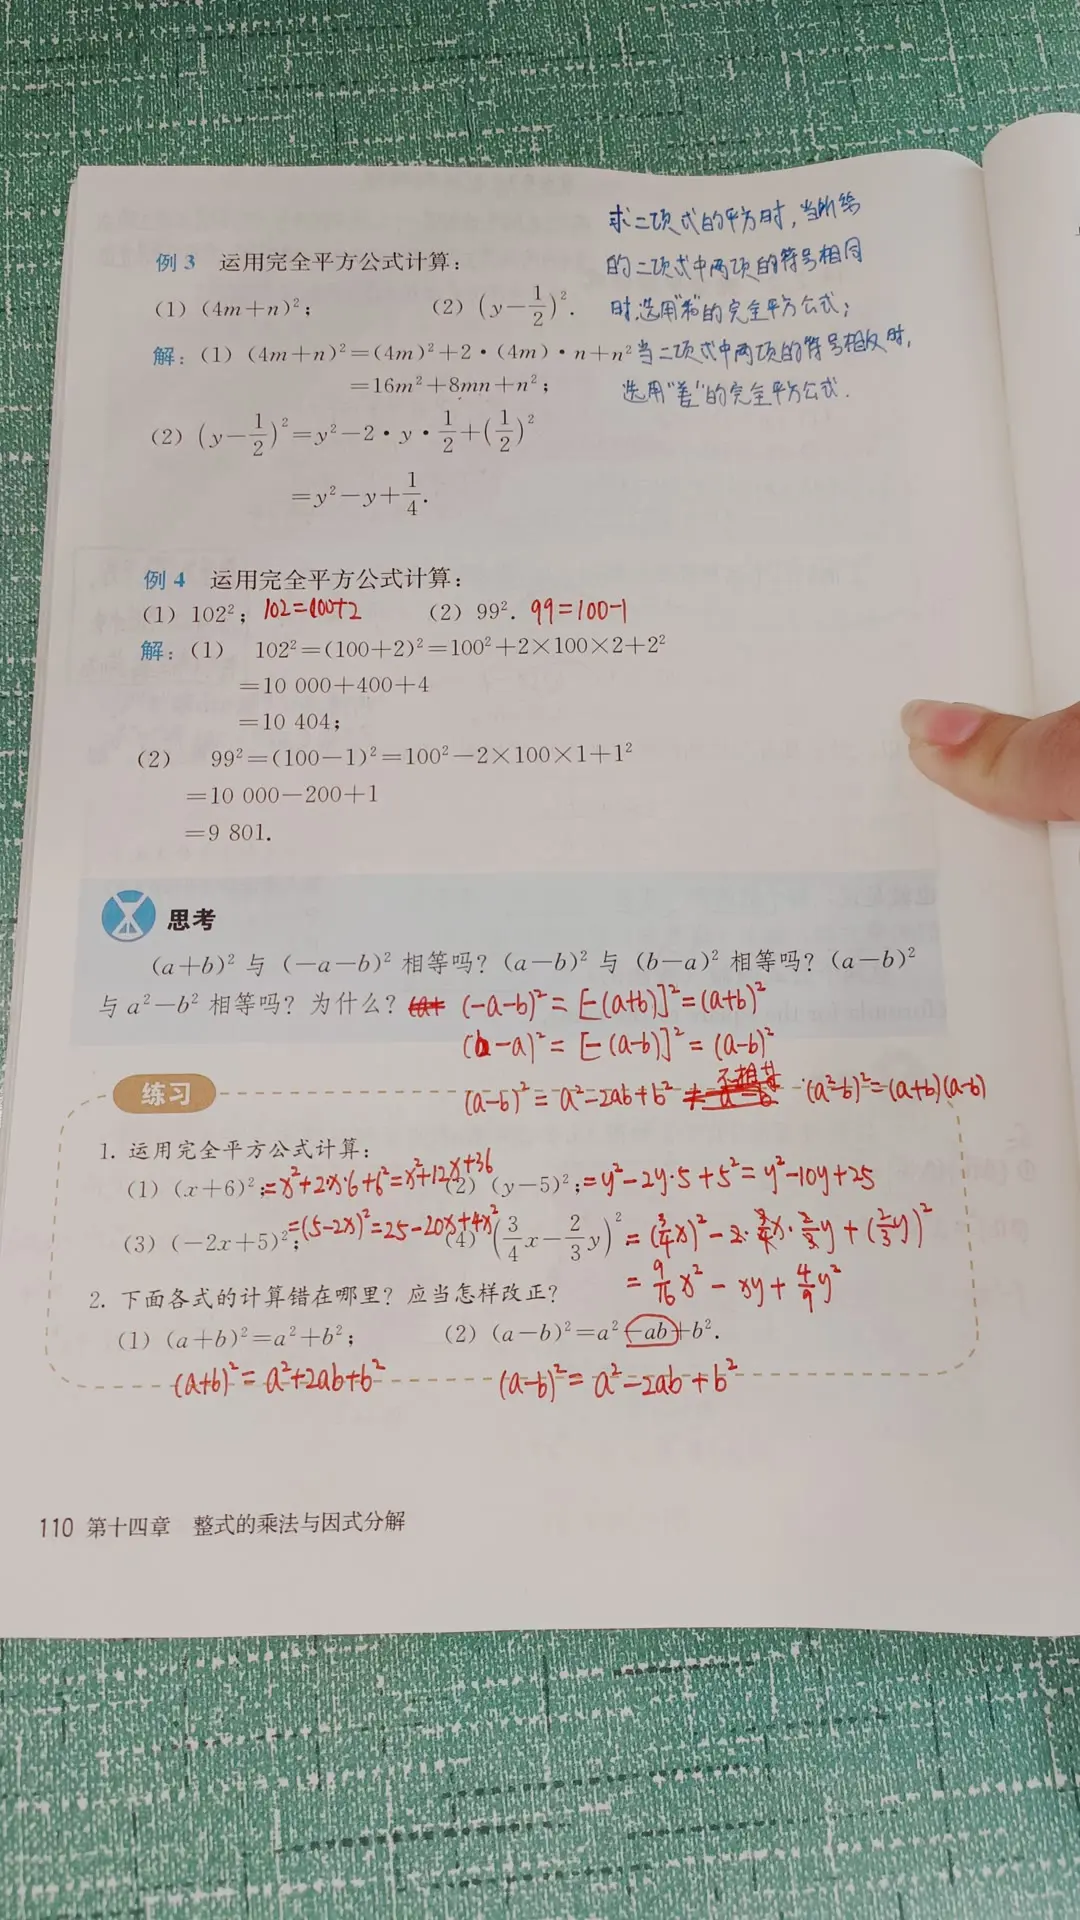 求二项式的平方时,当所给
的二项式中两项的符号相同
时,选用“和”的完全平方公式;
当二项式中两项的符号相反时,
选用“差”的完全平方公式.
例 3 运用完全平方公式计算:
(1) (4m+n)²; (2) (y-1/2)².
解: (1) (4m+n)²=(4m)²+2·(4m)·n+n²
=16m²+8mn+n²;
(2) (y-1/2)²=y²-2·y·1/2+(1/2)²
=y²-y+1/4.
例 4 运用完全平方公式计算:
(1) 102²; 102=100+2 (2) 99². 99=100-1
解: (1) 102²=(100+2)²=100²+2×100×2+2²
=10 000+400+4
=10 404;
(2) 99²=(100-1)²=100²-2×100×1+1²
=10 000-200+1
=9 801.
思考
(a+b)² 与 (-a-b)² 相等吗? (a-b)² 与 (b-a)² 相等吗? (a-b)²
与 a²-b² 相等吗? 为什么? (-a-b)²=[-(a+b)]²=(a+b)²
(b-a)²=[-(a-b)]²=(a-b)²
不相等
(a-b)²=a²-2ab+b² (a²-b)²=(a+b)(a-b)
练习
1. 运用完全平方公式计算:
(1) (x+6)²; =x²+2·x·6+6²=x²+12x+36 (2) (y-5)²; =y²-2y·5+5²=y²-10y+25
(3) (-2x+5)²; =(5-2x)²=25-20x+4x² (4) (3/4x-2/3y)² =(3/4x)²-2·3/4x·2/3y+(2/3y)²
=9/16x²-xy+4/9y²
2. 下面各式的计算错在哪里? 应当怎样改正?
(1) (a+b)²=a²+b²; (2) (a-b)²=a²-ab+b².
(a+b)²=a²+2ab+b² (a-b)²=a²-2ab+b²
110 第十四章 整式的乘法与因式分解